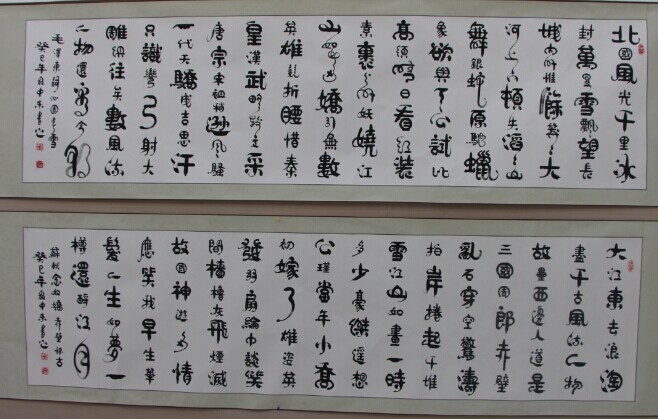 北國風光千里冰
封萬里雪飄望長
城內外惟餘莽莽大
河上下頓失滔滔山
舞銀蛇原馳蠟
象欲與天公試比
高須晴日看紅裝
素裹分外妖嬈江
山如此多嬌引無數
英雄競折腰惜秦
皇漢武略輸文采
唐宗宋祖稍遜風騷
一代天驕成吉思汗
只識彎弓射大
雕俱往矣數風流
人物還看今朝
毛澤東詞沁園春雪
癸巳年
大江東去浪淘
盡千古風流人物
故壘西邊人道是
三國周郎赤壁
亂石穿空驚濤
拍岸捲起千堆
雪江山如畫一時
多少豪傑遙想
公瑾當年小喬
初嫁了雄姿英
發羽扇綸巾談笑
間檣櫓灰飛煙滅
故國神遊多情
應笑我早生華
髮人生如夢一
樽還酹江月
蘇軾念奴嬌赤壁懷古
癸巳年